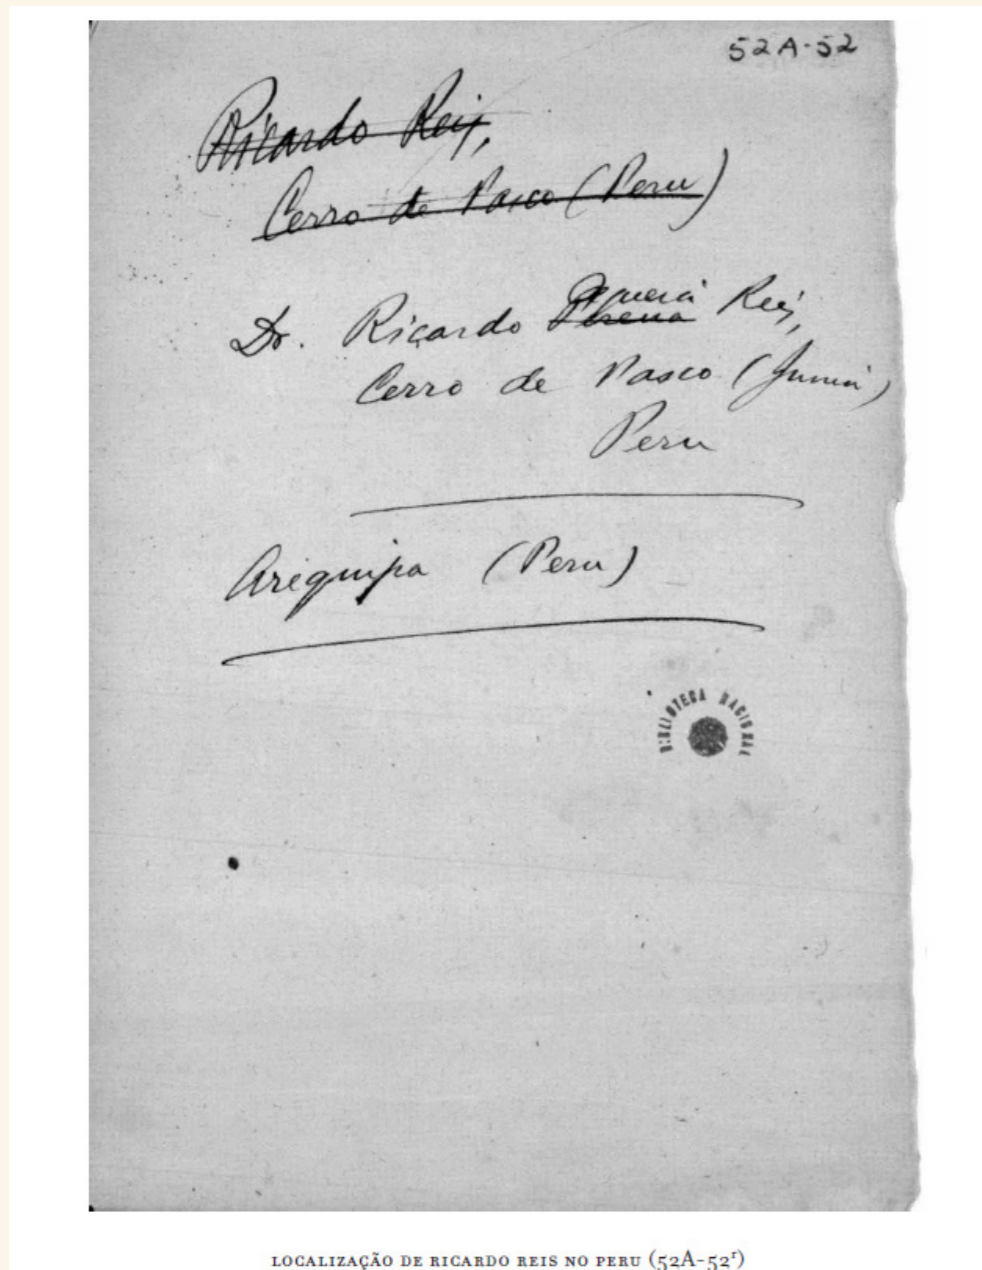 52A-52
Ricardo Reis,
Cerro de Pasco (Peru)
Dr. Ricardo Sequeira Reis,
Cerro de Pasco (Junin)
Peru
Arequipa (Peru)
BIBLIOTECA NACIONAL
LOCALIZAÇÃO DE RICARDO REIS NO PERU (52A-52ʳ)